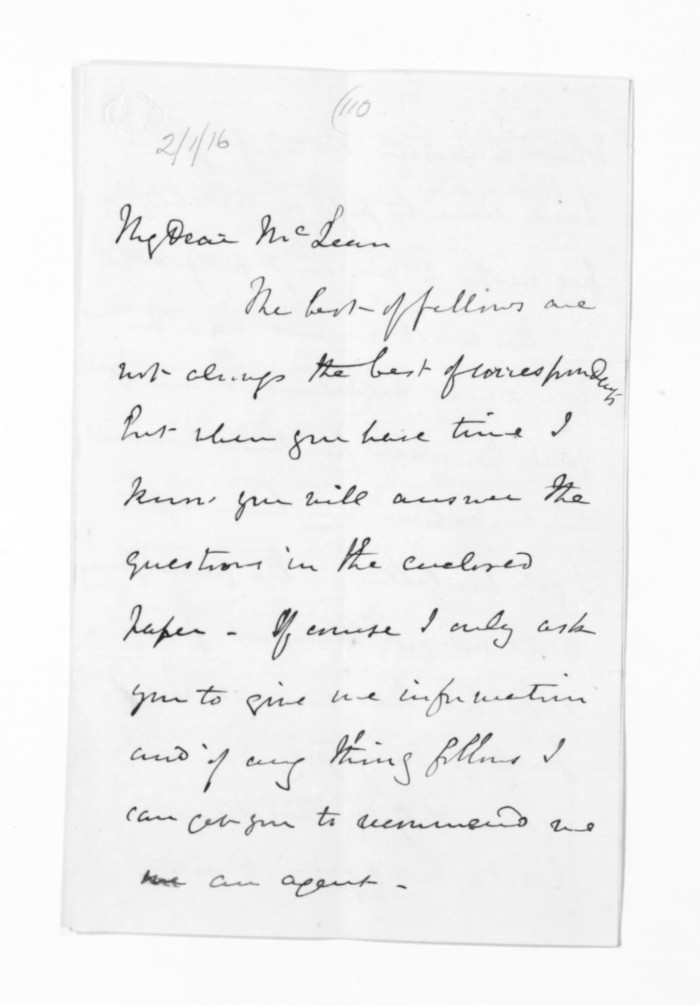 (110
2/1/16
My Dear McLean
The best of fellows are
not always the best of correspondents
But when you have time I
know you will answer the
questions in the enclosed
paper - Of course I only ask
you to give me information
and if any thing follows I
can get you to recommend me
an agent -